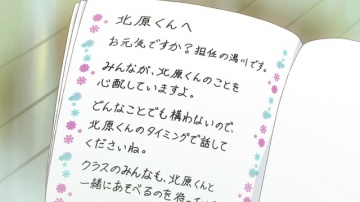 北原くんへ
お元気ですか?担任の湯川です。
みんなが、北原くんのことを
心配していますよ。
どんなことでも構わないので、
北原くんのタイミングで話して
くださいね。
クラスのみんなも、北原くんと
一緒にあそべるのを待って